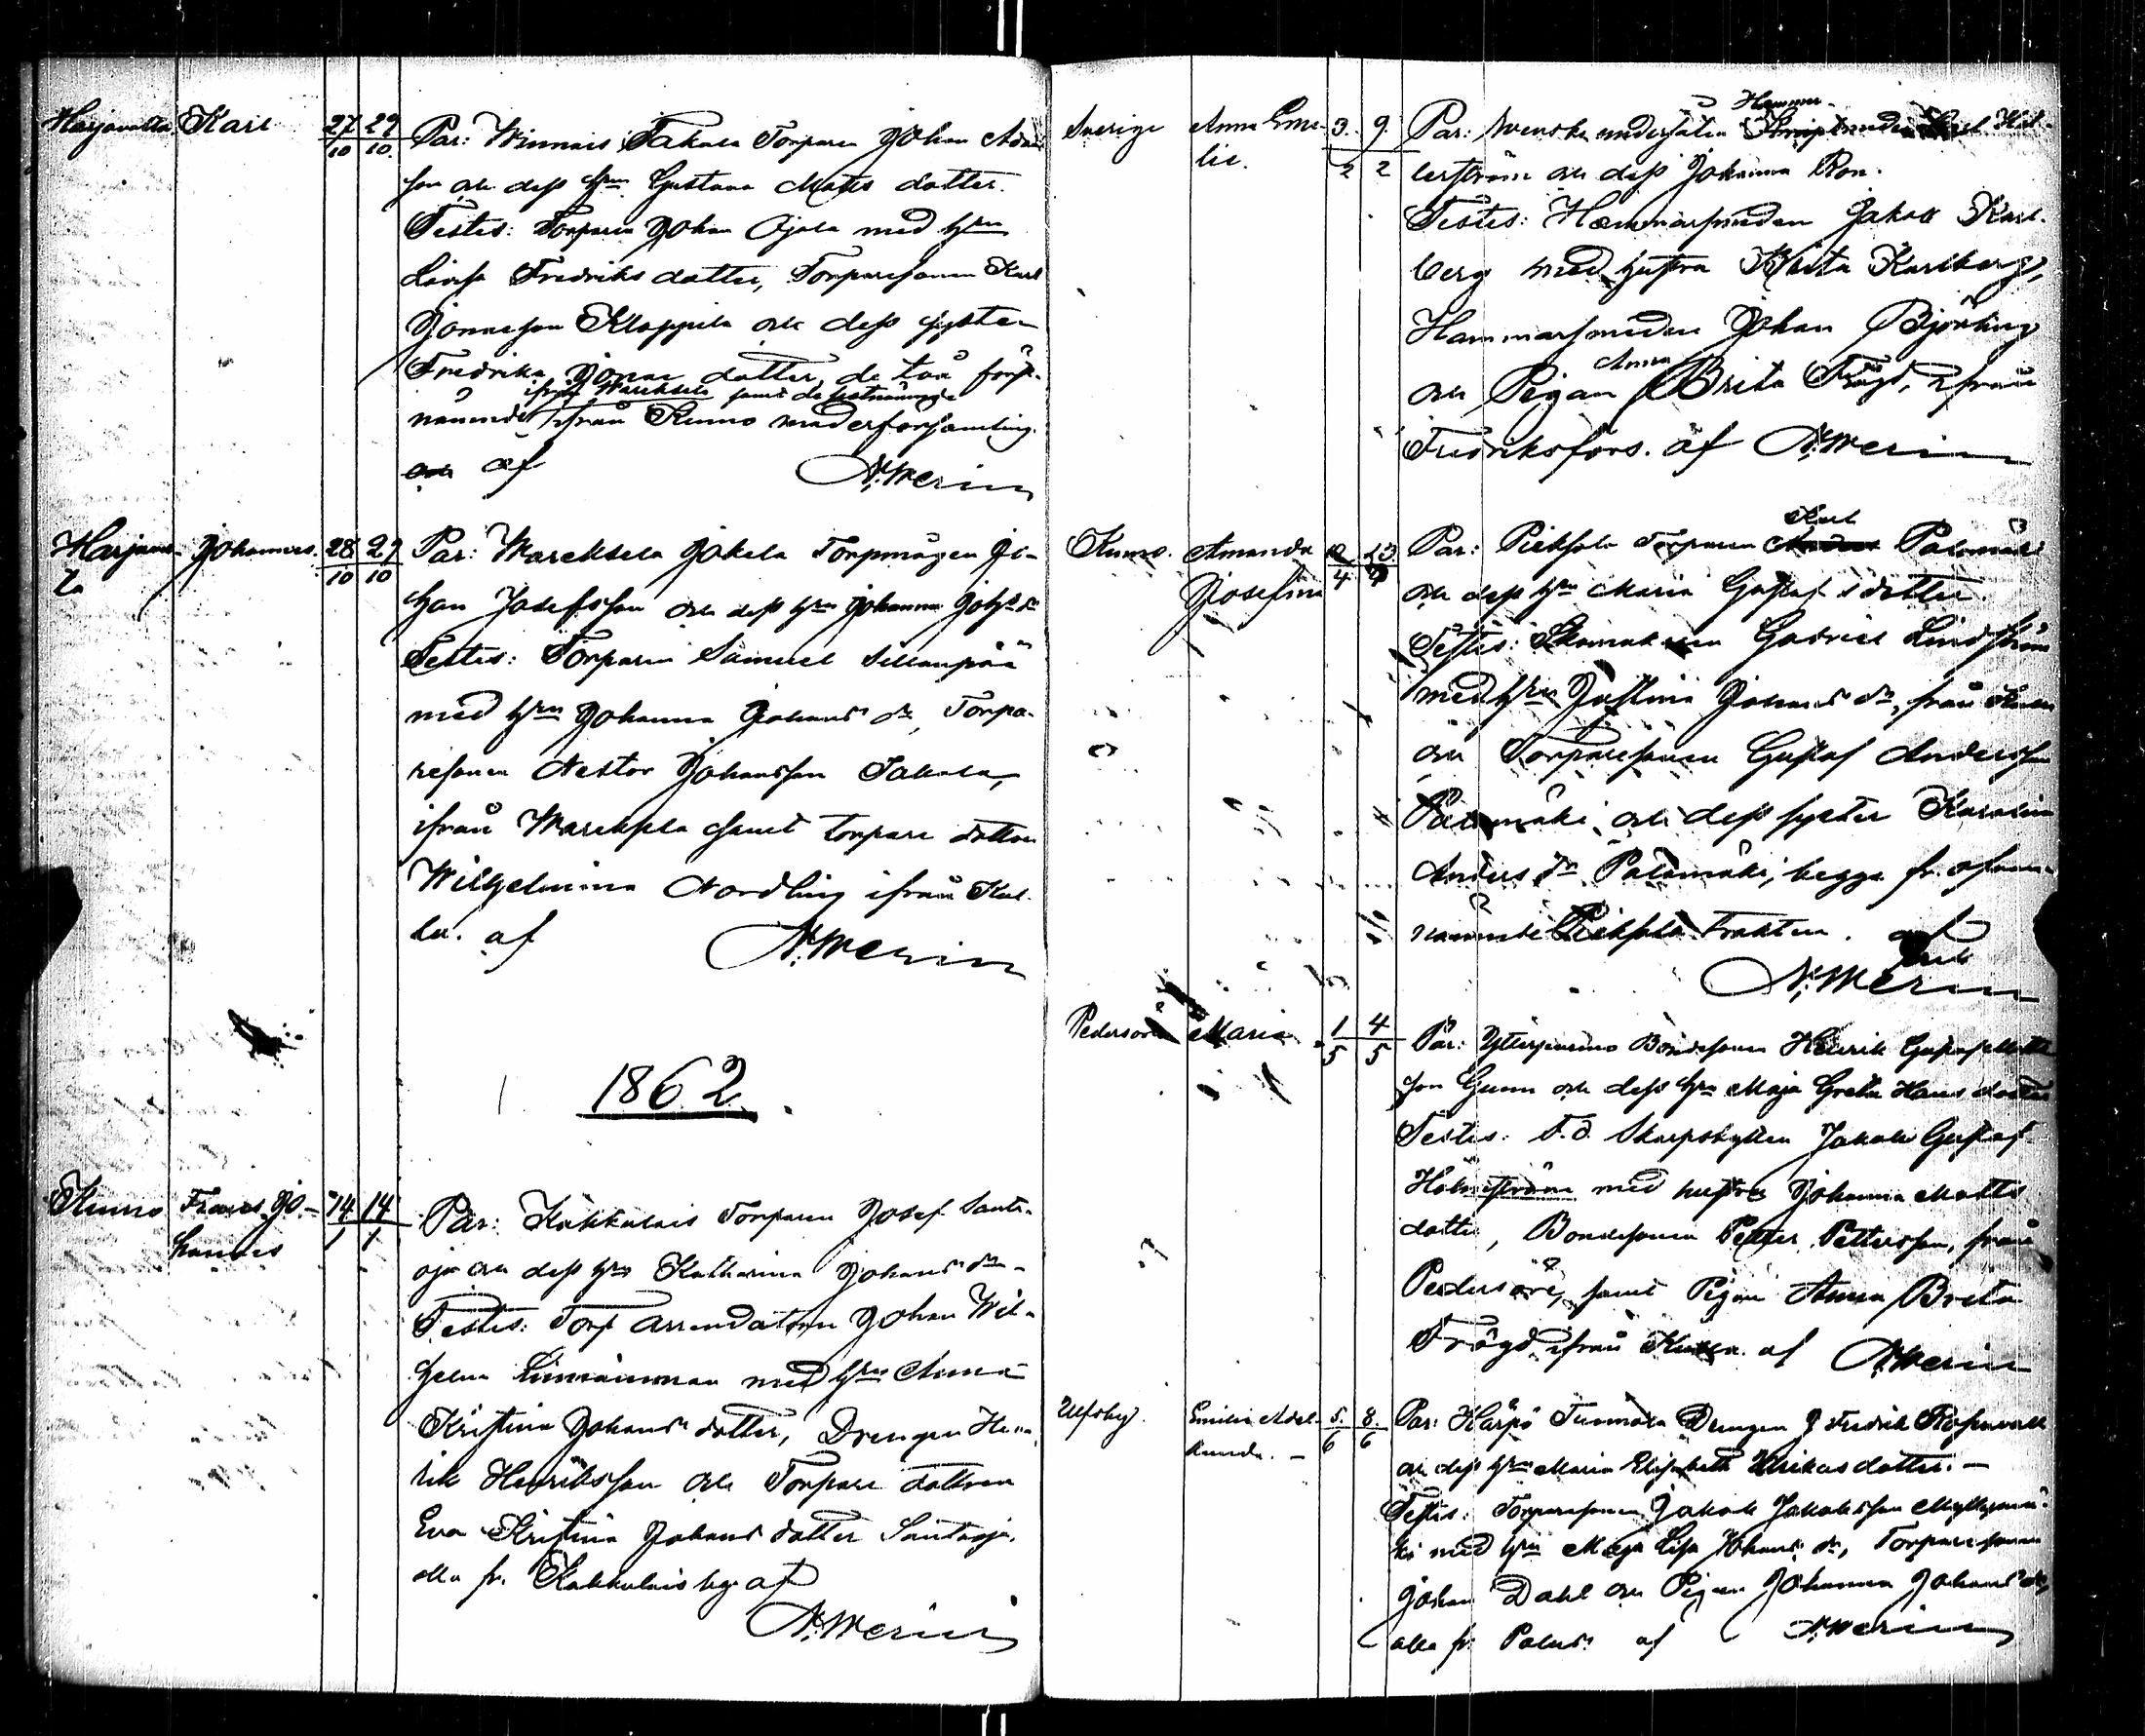 Harjavalta Karl 27/10 29/10 Par: Winnais Takala Torparen Johan Adams
son och dess hru Gustava Matts dotter.
Testes: Torparen Johan Ojala med hru
Lovisa Fredriks dotter, Torparesonen Karl
Jonasson Kloppila och dess syster
Fredrika Jonas dotter, de två först
ifrån Wareksela samt de sistnämnde
nämnde ifrån Kiuno moderförsamling.
och af N. Merin
Harjaval-
ta Johannes. 28/10 29/10 Par: Wareksela Jokela Torpmågen Jo-
han Josefsson och dess hru Johanna Johs dr
Testes: Torparen Samuel Sillanpää
med hru Johanna Johans dr, Torpa-
resonen Nestor Johansson Takala,
ifrån Wareksela samt torpare dottren
Wilhelmina Nordling ifrån Kul-
la. af N. Merin
1862.
Kiuno Frans Jo-
hannes 14/1 14/1 Par: Kukkulais Torparen Josef Santa-
oja och dess hru Katharina Johans dr
Testes: Torp arrendatorn Johan Wil-
helm med hru Anna
Kristina Johans dotter, Drengen Hen-
rik Henriksson och Torpare dottren
Eva Kristina Johans dotter Santaoja.
alla fr. Kukkulais by. af
N. Merin
Sverige Anna Eme-
lie. 3/2 9/2 Par: Svenska undersåten Hammar-
smeden Karl
och dess Johanna
Testes: Hammarsmeden Jakob Karl-
berg med hustru Brita Karlberg,
Hammarsmeden Johan Björling
och Pigan Anna Brita Frögd, ifrån
Fredriksfors. af N. Merin
Kiuno. Amanda
Josefina Par: Pieksala Torparen Karl Palomäki
och dess hru Maria Gustafs dotter.
Testes: Skomakaren Gabriel Lindström
med hru Justina Johans dr, från Kulla
och Torparesonen Gustaf Andersson
Palomäki och dess syster Karolina
Anders dr Palomäki, begge fr. ofvan-
nämnde Pieksala trakten. af
N. Merin
Pedersöre Maria 1/5 4/5 Par: Ytterjeansmo Bondesonen Henrik Gustaf Matts
son Gunn och dess hru Maja Greta Hans dotter
Testes: F.d. Skarpskytten Jakob Gustaf
Holmström med hustru Johanna Matts
dotter, Bondesonen Petter Pettersson, från
Pedersöre, samt Pigan Anna Brita
Frögd ifrån Kulla. af N. Merin
Ulfsby. Emilia Adel-
 5/6 8/6 Par: Harpö Tuomola Drengen J Fredrik
och dess hru Maria Elisabeth Eriks dotter. —
Testes: Torparesonen Jakob Jakobsson Myllymä-
ki med hru Maja Lisa Johans dr, Torparesonen
Johan Dahl och Pigan Johanna Johans dr,
alla fr. Palus. af N. Merin